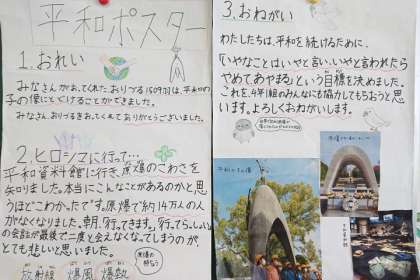 平和ポスター
1.おれい
みなさんがおってくれた、おりづる1509羽は、平和の
子の像にとどけることができました。
みなさん、おりづるをおってくれてありがとうございました。
2.ヒロシマに行って…
平和資料館に行き、原爆のこわさを
知りました。本当にこんなことがあるのかと思
うほどこわかったです。原爆で約14万人の人
がなくなりました。朝、「行ってきます。」「行ってらっしゃい」
の会話が最後で二度と会えなくなってしまうのが、
とても悲しいと思いました。
放射線 爆風 爆熱
3.おねがい
わたしたちは、平和を続けるために、
「いやなことはいやと言い、いやと言われたら
やめて、あやまる」という目標を決めました。
これを、4年1組のみんなにも協力してもらおうと思
います。よろしくおねがいします。